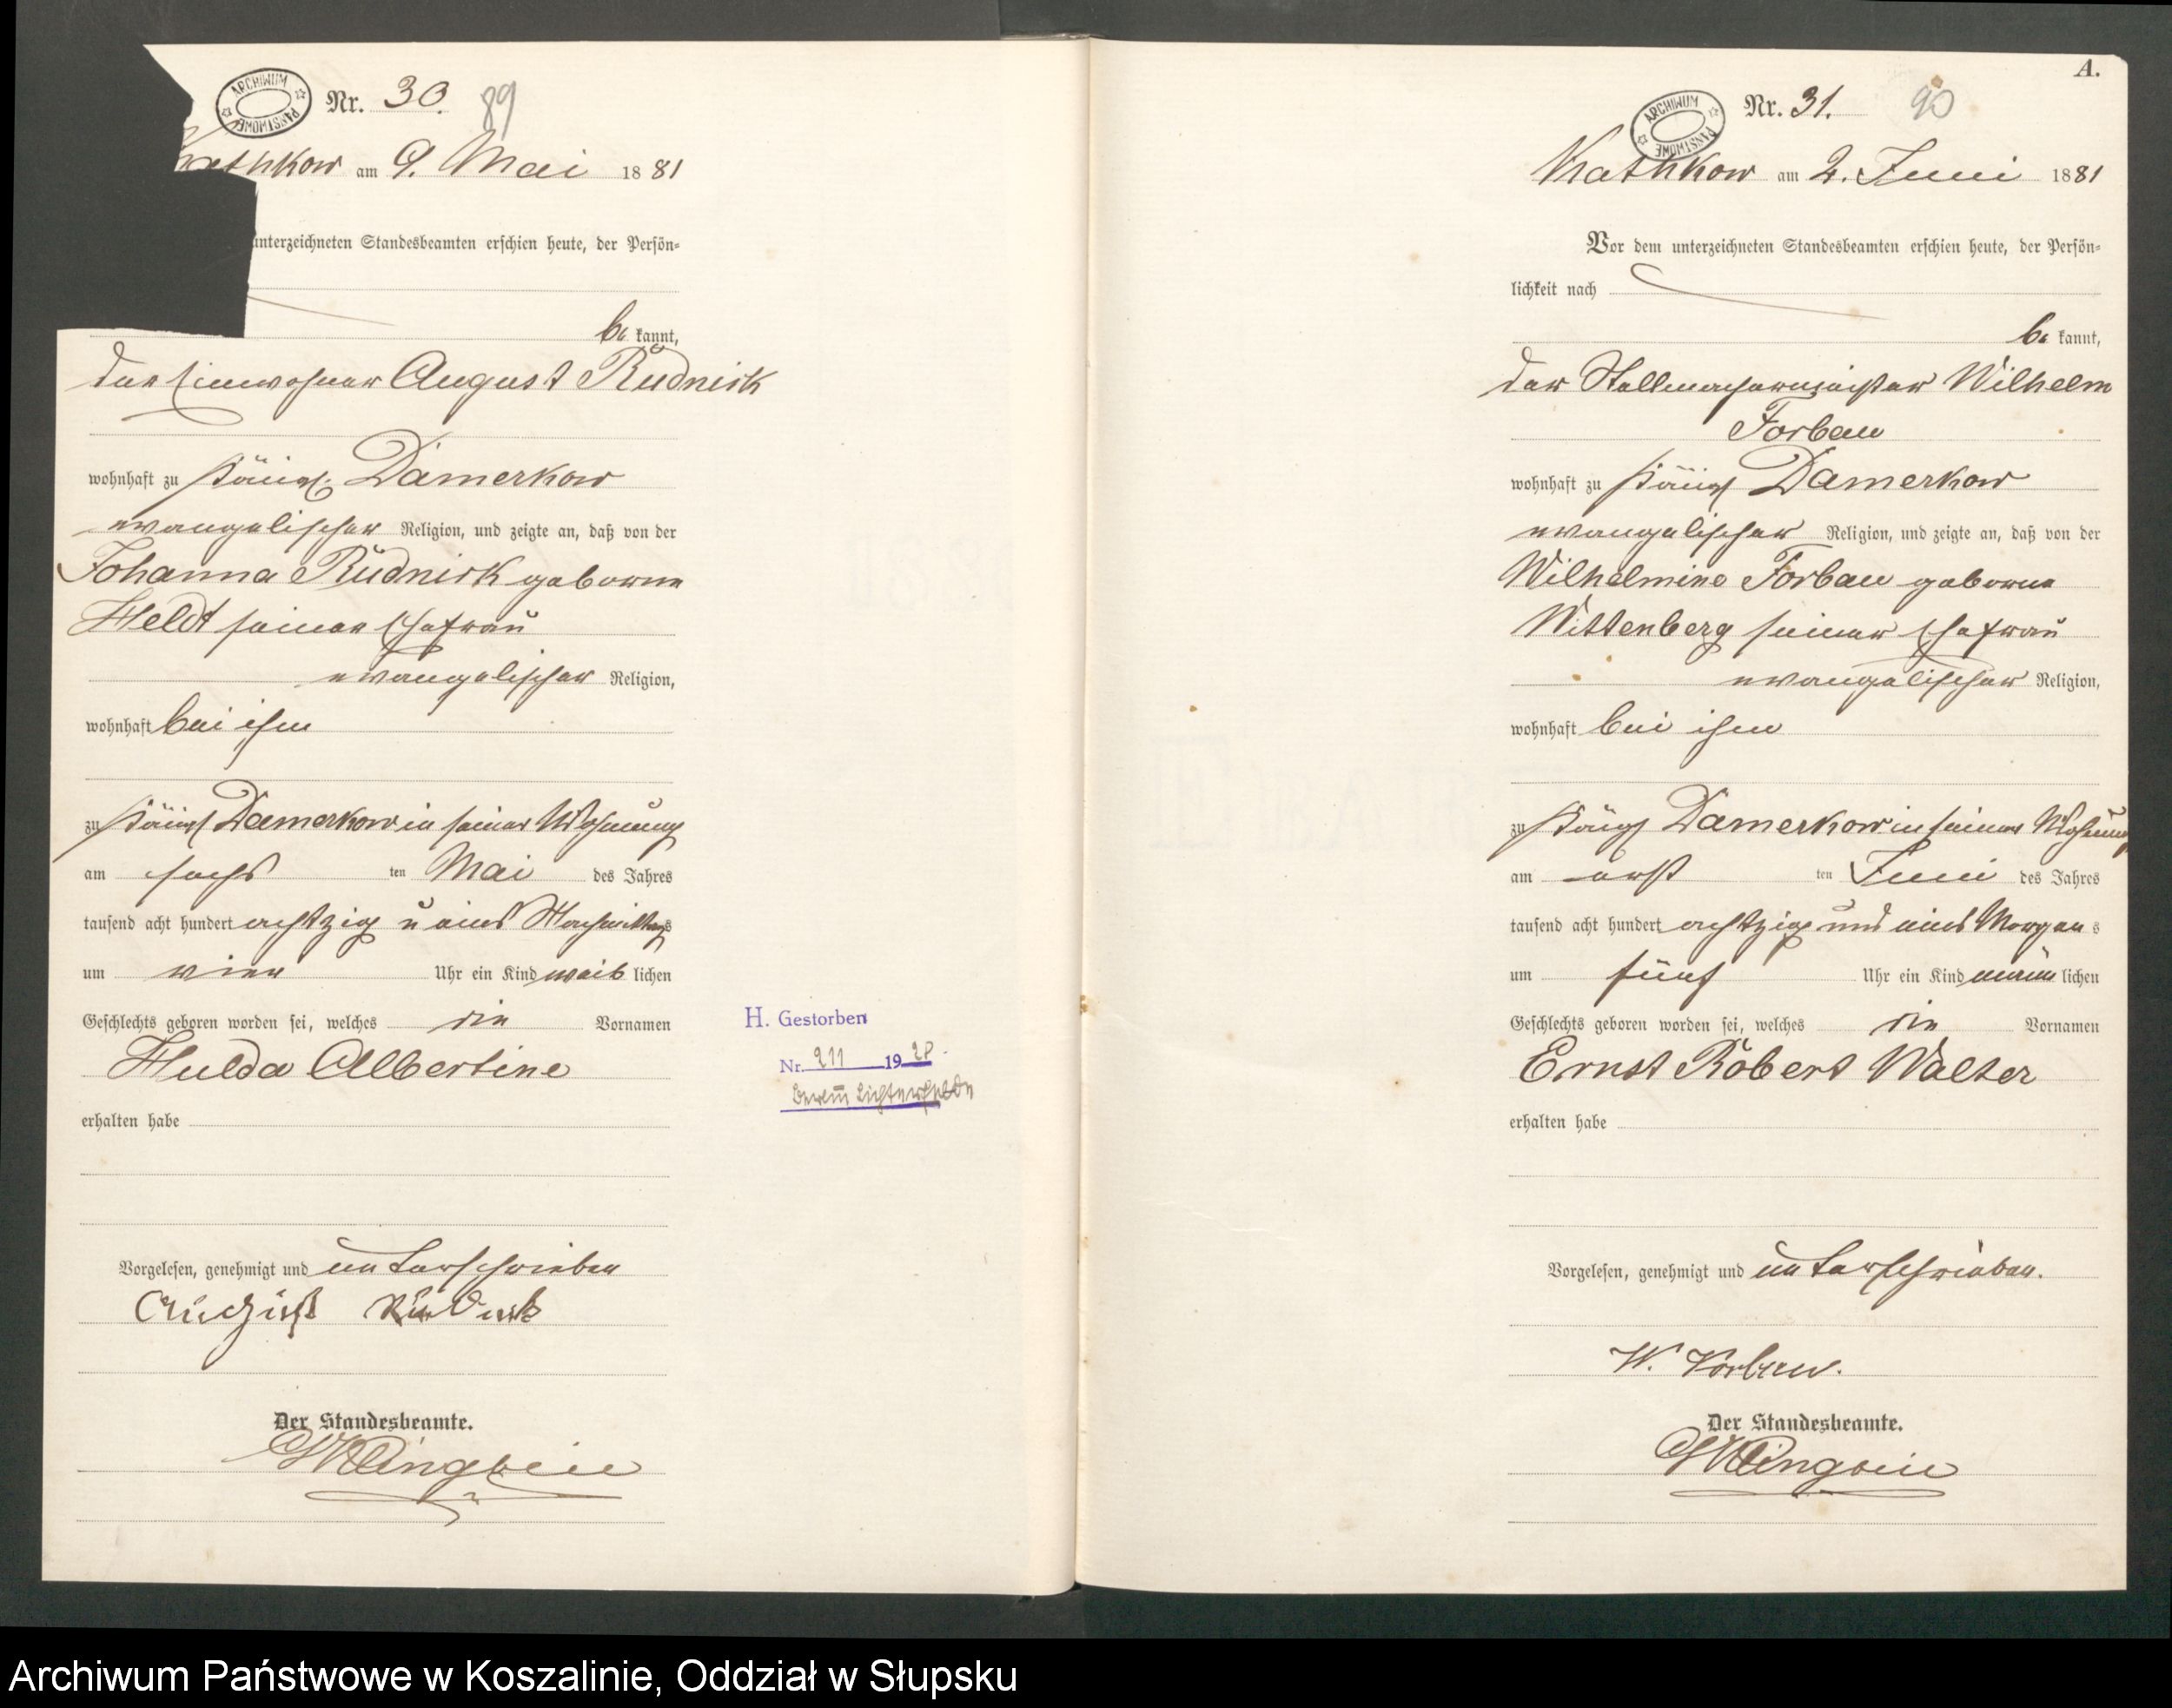 ARCHIWUM PAŃSTWOWE
Nr. 30.
89
am 9. Mai 1881
unterzeichneten Standesbeamten erschien heute, der Persön-
be kannt,
der Einwohner August Rudnick
wohnhaft zu Königl. Damerkow
evangelischer Religion, und zeigte an, daß von der
Johanna Rudnick geborne
Heldt seiner Ehefrau
evangelischer Religion,
wohnhaft bei ihm
zu Königl Damerkow in seiner Wohnung
am sechs ten Mai des Jahres
tausend acht hundert achtzig u eins Nachmittags
um vier Uhr ein Kind weib lichen
Geschlechts geboren worden sei, welches die Vornamen
Hulda Albertine
erhalten habe
Vorgelesen, genehmigt und unterschrieben
August Rudnick
Der Standesbeamte.
H. Gestorben
Nr. 211 1928.
Berlin Lichterfelde
A.
ARCHIWUM PAŃSTWOWE
Nr. 31.
90
Kathkow am 2. Juni 1881
Vor dem unterzeichneten Standesbeamten erschien heute, der Persön-
lichkeit nach
be kannt,
der Stellmachermeister Wilhelm
Forbau
wohnhaft zu Königl Damerkow
evangelischer Religion, und zeigte an, daß von der
Wilhelmine Forbau geborne
Wittenberg seiner Ehefrau
evangelischer Religion,
wohnhaft bei ihm
zu Königl Damerkow in seiner Wohnung
am erst ten Juni des Jahres
tausend acht hundert achtzig und eins Morgens
um fünf Uhr ein Kind männ lichen
Geschlechts geboren worden sei, welches die Vornamen
Ernst Robert Walter
erhalten habe
Vorgelesen, genehmigt und unterschrieben.
W. Vorbau.
Der Standesbeamte.
Archiwum Państwowe w Koszalinie, Oddział w Słupsku